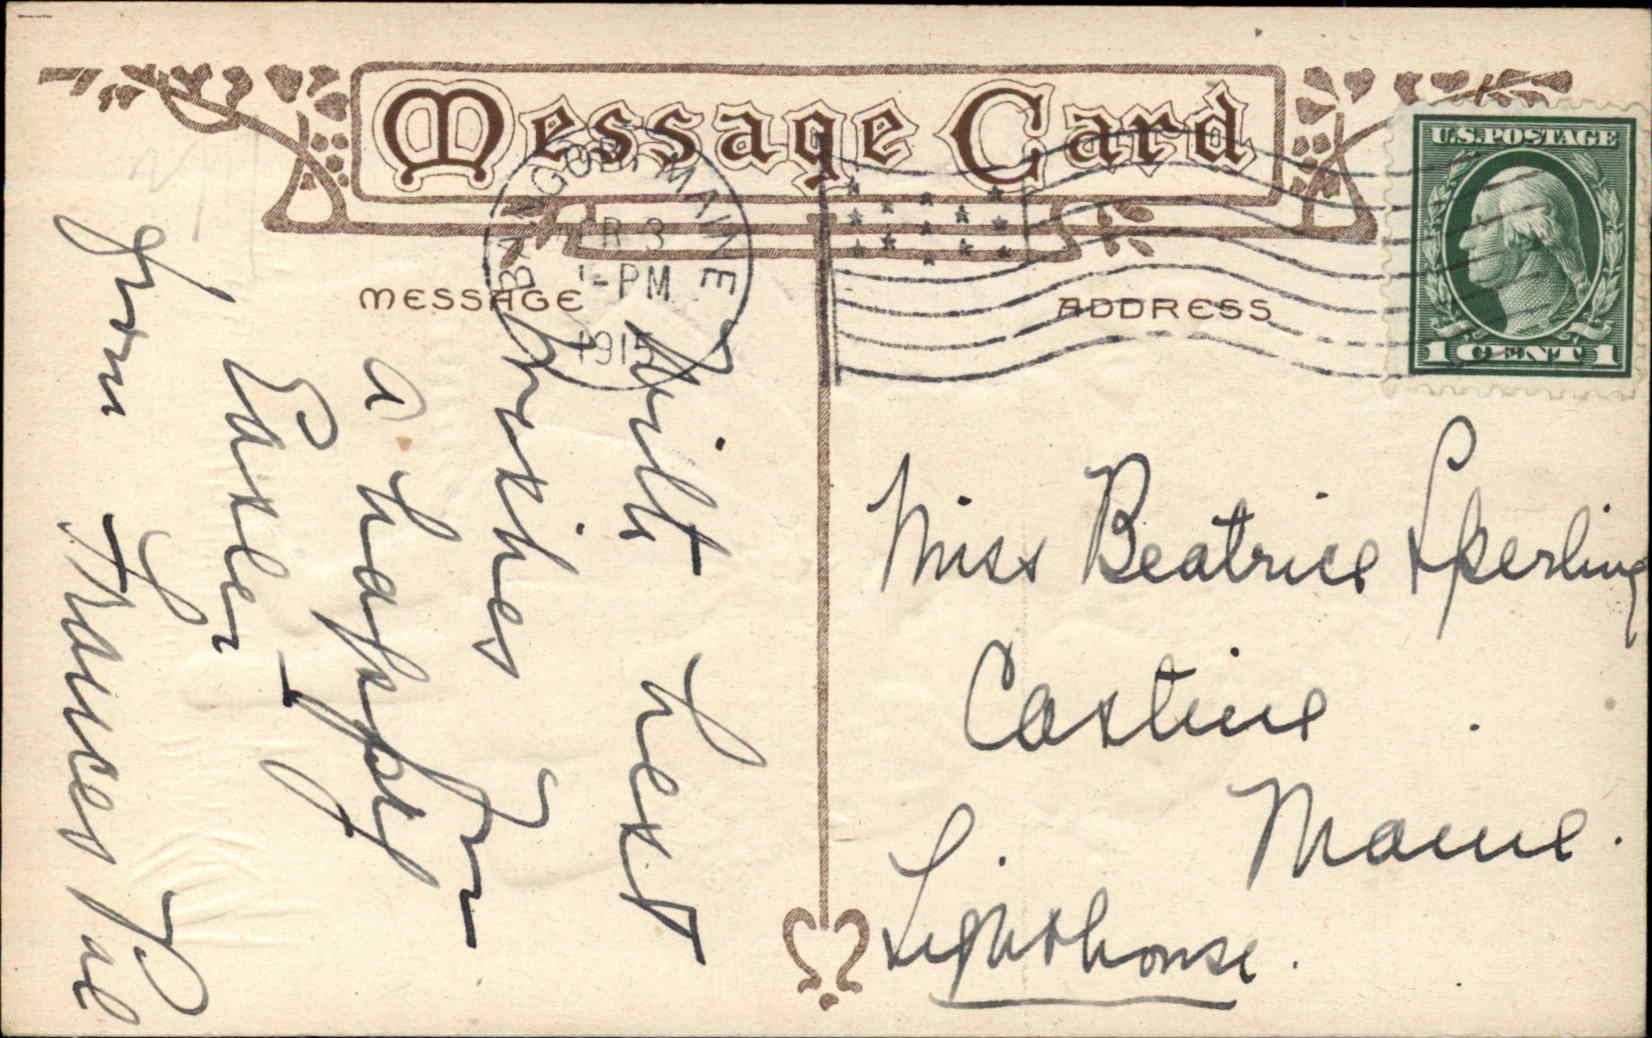 Message Card
BANGOR, MAINE
APR 3
1-PM
1915
U.S. POSTAGE
1 CENT 1
MESSAGE
ADDRESS
With best
wishes for
a happy
Easter
from Frances
Miss Beatrice Sperling
Castine
Maine.
Lighthouse.